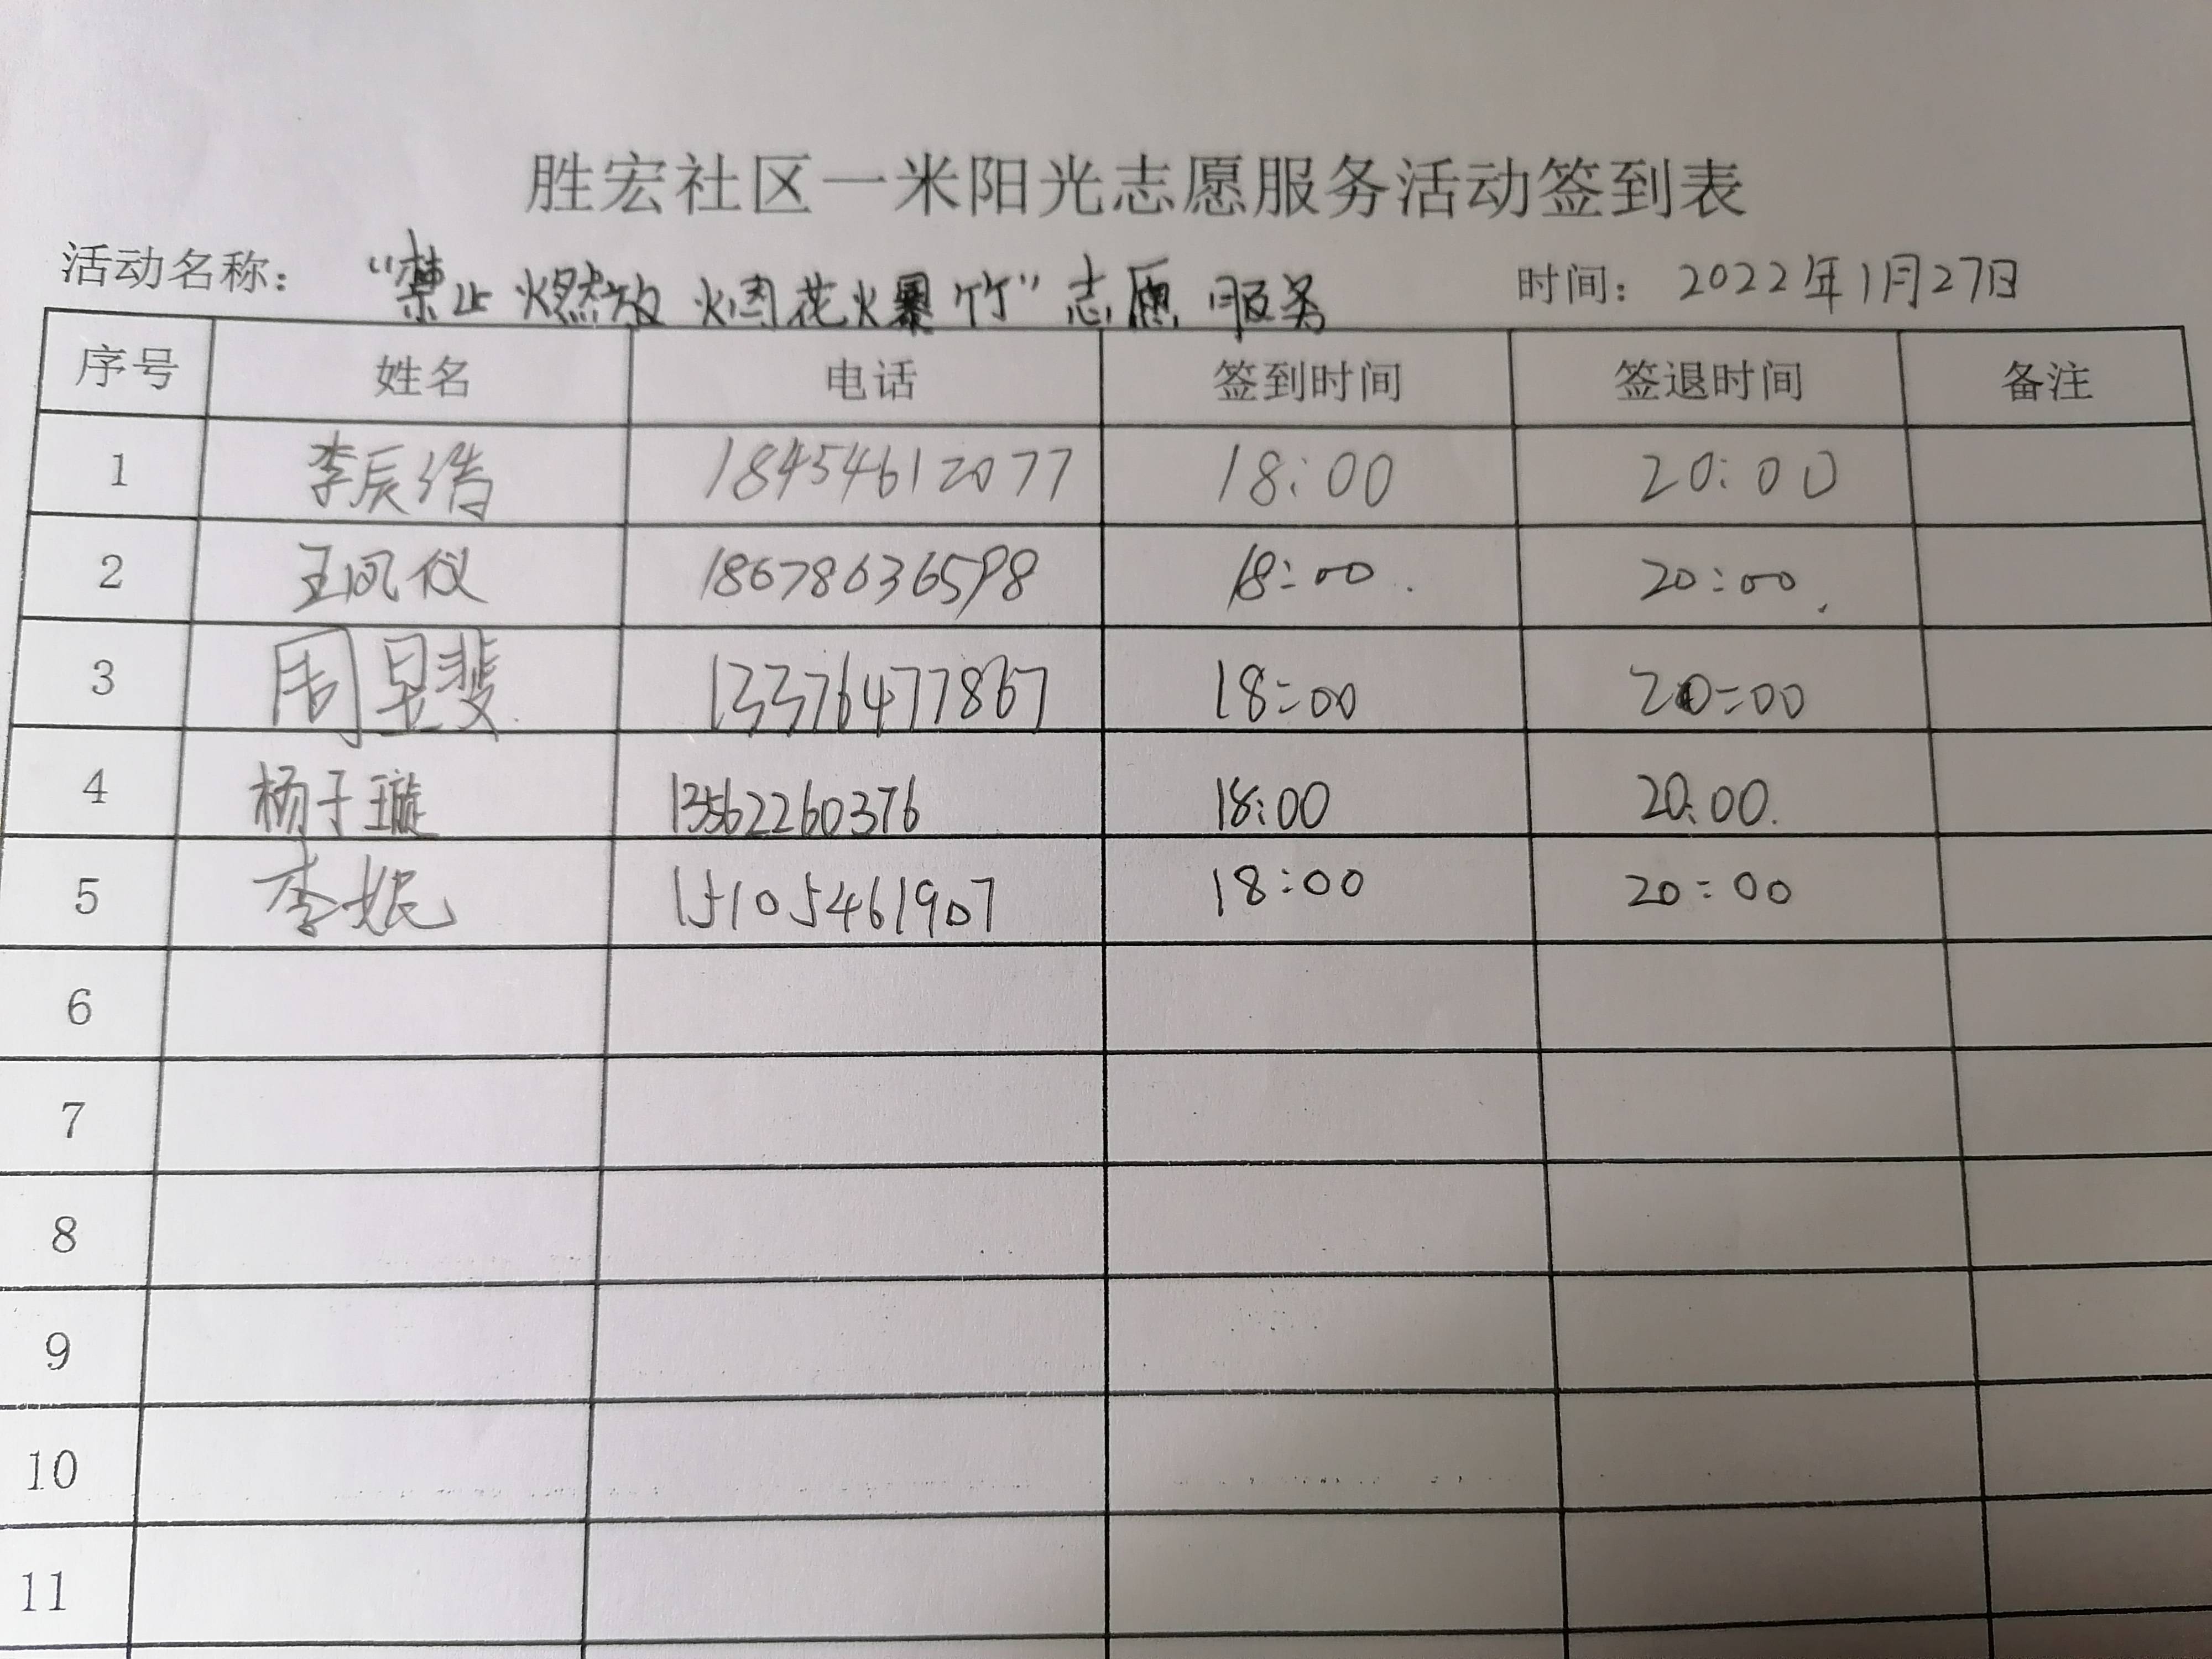 胜宏社区一米阳光志愿服务活动签到表
活动名称： “禁止燃放烟花爆竹”志愿服务 时间： 2022年1月27日
序号 姓名 电话 签到时间 签退时间 备注
1 李辰浩 18454612077 18:00 20:00
2 王凤仪 18678636598 18:00. 20:00.
3 周昱斐 13376477867 18:00 20:00
4 杨子璇 13562260376 18:00 20:00.
5 李妮 15105461907 18:00 20:00
6
7
8
9
10
11